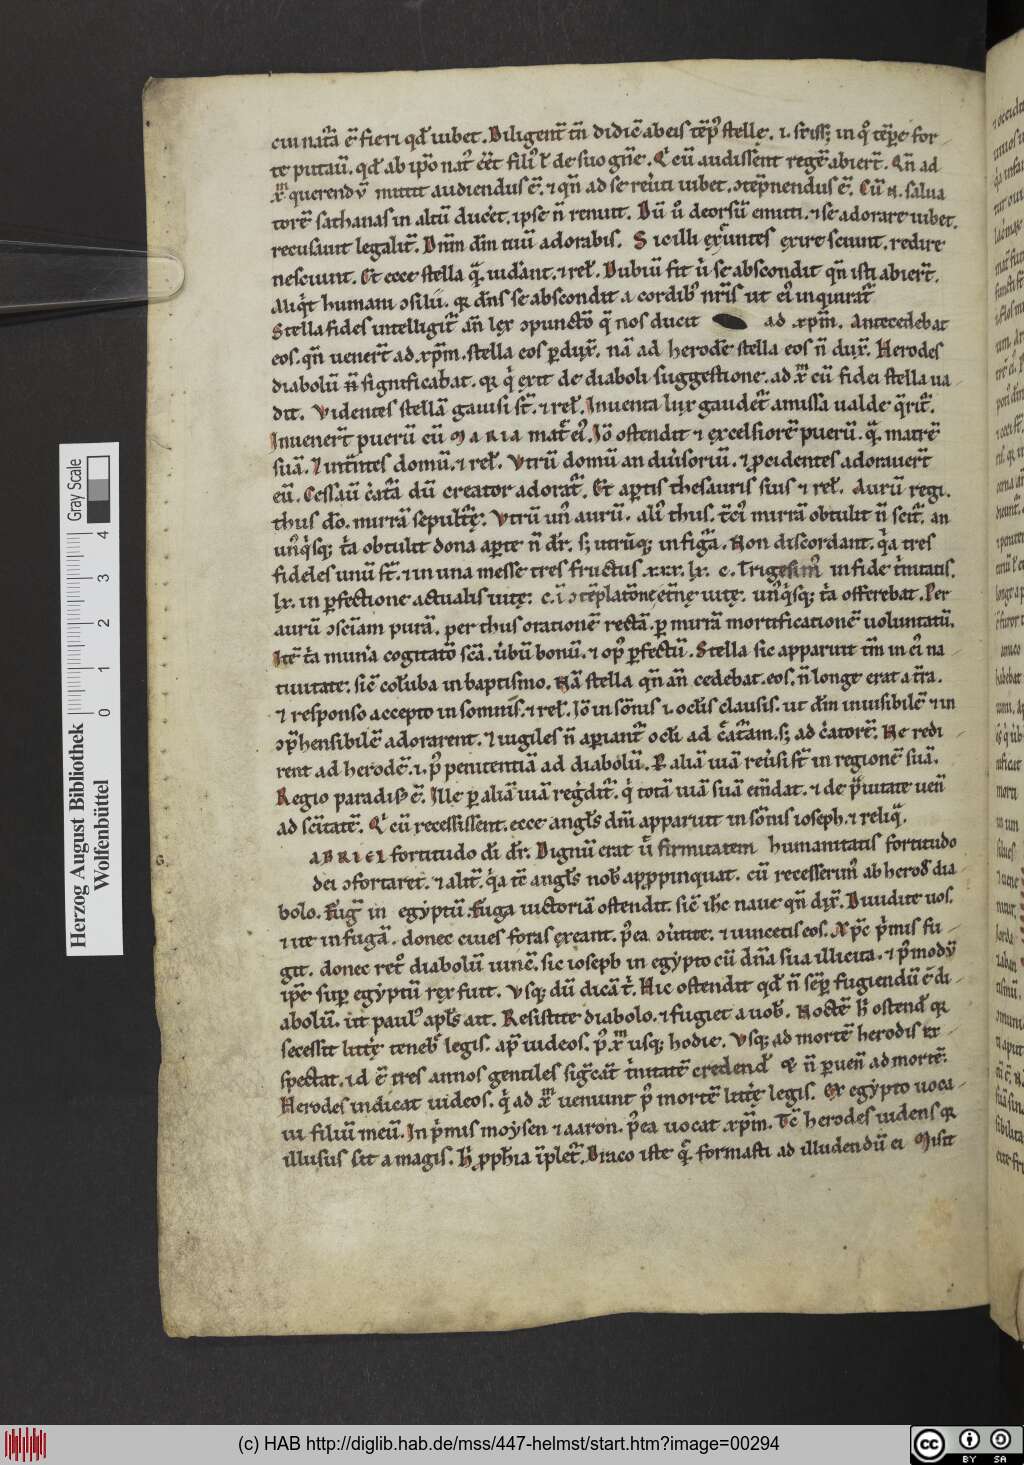 cui nat᷑a ē fieri qđ iubet. Diligent᷑ tn̄ didic̄ ab eis tēp᷒ stelle. i. sc̄iss; in qͦ tēpe for
te putaū. qđ ab ip̄o nat᷒ eēt fili᷒ ł de suo gn̄e. Qͥ cū audissent regē abier̄t. Qn̄ ad
xm̄ querendū mittit audiendus ē. ⁊ qn̄ ad se reūti iubet. ɔtēpnendus ē. Cū n̄. salua
torē sathanas in altū ducet. ipse n̄ renuit. Dū ū deorsū emitti. ⁊ se adorare iubet.
recusauit legalit᷑. Dnm̄ dm̄ tuū adorabis. Sic illi exeuntes exire sciunt. redire
nesciunt. Et ecce stella qͣ. uidant. ⁊ reł. Dubiū fit ū se abscondit qn̄ isti abiert.
Aliqͥt humani ɔsilii. qr dn̄s se abscondit a cordib᷒ nr̄is ut ei᷒ inquirat᷑
Stella fides intelligit᷑ an̄ lex ɔpunctō qͣ nos ducit ad xpm̄. Antecedebat
eos. qn̄ uenert ad xpm̄. stella eos pdux̄. nā ad herodē stella eos n̄ dux̄. Herodes
diabolū n̄ significabat. qr qͥ exit de diaboli suggestione. ad xm̄ cū fidei stella ua
dit. Videntes stellā gauisi st̄. ⁊ reł. Inuenta lux gaudet᷑ amissa ualde qͣrit᷑.
Inuenert puerū cū MARIA mat᷑ ei᷒. Iō ostendit ⁊ excelsiorē puerū. qͣ. matrē
suā. Intntes domū. ⁊ reł. Vtrū domū an diūsoriū. ⁊ procidentes adorauert
eū. Cessaū cͣatͣa dū creator adorat᷑. Et aptis thesauris suis ⁊ reł. Aurū regi.
thus dō. mirrā sepult᷑e. Vtrū un᷒ aurū. ali᷒ thus. t̄ci᷒ mirrā obtulit n̄ scit᷑. an
un᷒qͥsq; tͥa obtulit dona apte n̄ dr̄. s; utrūq; in figͣa. Non discordant. qͥa tres
fideles unū st̄. ⁊ in una messe tres fructus. xxx. lx. c. Trigesim᷒ in fide tͥnitatis.
lx. in pfectione actualis uitę. c. ī ɔtēplatōne et̄ne uitę. un᷒qͥsq; tͥa offerebat. Per
aurū ɔsciam purā. per thus orationē rectā. p mirrā mortificationē uoluntatū.
Itē tͥa munͣa cogitatō scā. ūbū bonū. ⁊ op᷒ pfectū. Stella sic apparuit tm̄ in ei᷒ na
tiuitate. sic̄ coluba in baptismo. Nā stella qn̄ an̄ cedebat. eos. n̄ longe erat a t̄ra.
⁊ responso accepto in somnis. ⁊ reł. Iō in sōnis i. oclis clausis. ut dm̄ inuisibilē ⁊ in
ɔphensibilē adorarent. ⁊ uigiles n̄ apiant᷑ ocłi ad cͣatͣam. s; ad cͣatorē. Ne redi
rent ad herodē. i. p᷒ penitentiā ad diabolū. P aliā uiā reūsi st̄ in regionē suā.
Regio paradis᷒ ē. Ille p aliā uiā regͣdit᷑. qͥ totā uiā suā emdat. ⁊ de pͣuitate uen̄
ad scitatē. Qͥ cū recessissent. ecce angłs dnī apparuit in sōnis ioseph. ⁊ reliqͣ.
G ABRIEL fortitudo di dr̄. Dignū erat ū firmitatem humanitatis fortitudo
dei ɔfortaret. ⁊ alit᷑. qͥa tē angłs nob᷒ appropinquat. cū recesserim᷒ ab herođ dia
bolo. Fug᷑ in egyptū. Fuga uictoriā ostendit. sic̄ ihc̄ naue qn̄ dix̄. Diuidite uos.
⁊ ite in fugā. donec ciues foras exeant. p᷒ea ɔūtite. ⁊ uincetis eos. Xpc̄ pͥmis fu
git. donec ret᷒ diabolū uinc̄. sic ioseph in egypto cū dn̄a sua illicita. ⁊ p᷒modū
ipē sup egyptū rex fuit. Vsq; dū dicā t᷒. Hic ostendit qđ n̄ sēp fugiendū ē di
abolū. ut paul᷒ apłs ait. Resistite diabolo. ⁊ fugiet a uob᷒. Noctē h̄ ostend̄ qr
secessit littͣę teneb᷒ legis. ap̄ iudeos. p᷒ xm̄ usq; hodie. Vsq; ad mortē herodis ex
spectat. id ē tres annos gentiles sigͥcat᷑ tͥnitatē credend̄ ⁊ n̄ puen̄ ad mortē.
Herodes indicat iudeos. qͥ ad xm̄ ueniunt p᷒ mortē littͣę legis. Ex egypto uoca
ui filiū meū. In pͥmis moysen ⁊ aaron. p᷒ea uocat xpm̄. Tc̄ herodes uidens qr
illusus eēt a magis. h̄ pphīa īplet᷑. Draco iste qͣ. formasti ad illudendū ei Misit
Herzog August Bibliothek
Wolfenbüttel
Gray Scale
0 1 2 3 4
(c) HAB http://diglib.hab.de/mss/447-helmst/start.htm?image=00294
cc BY SA